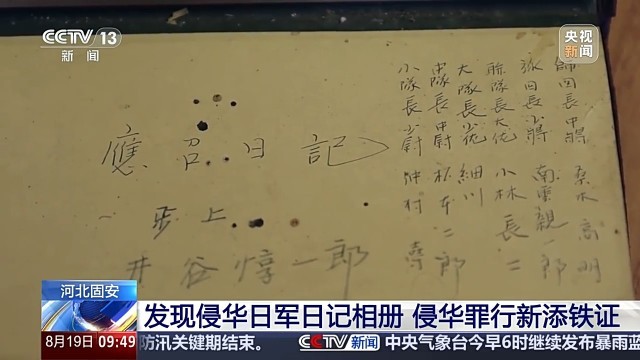 CCTV 13
新闻
央视
新闻
師団長中將 桑木
旅団長少將 南雲親一郎
聯隊長大佐 小林長二
大隊長少佐 細川
中隊長中尉 二郎
小隊長少尉
應召日記
歩上
井谷惇一郎
河北固安
发现侵华日军日记相册 侵华罪行新添铁证
8月19日 09:49 防汛关键期结束。 CCTV 新闻 中央气象台今早6时继续发布暴雨蓝